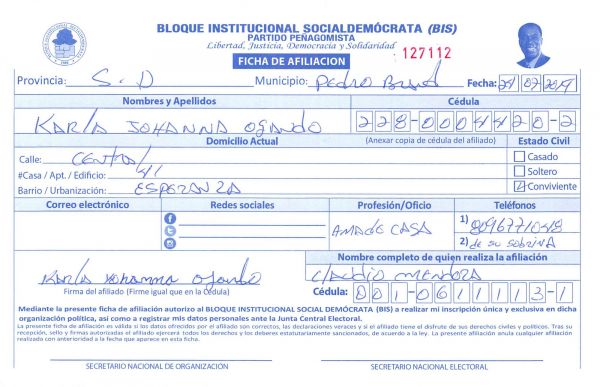 BLOQUE INSTITUCIONAL SOCIALDEMÓCRATA (BIS)
PARTIDO PEÑAGOMISTA
Libertad, Justicia, Democracia y Solidaridad
127112
FICHA DE AFILIACION
Provincia: S-D Municipio: Pedro Brand Fecha: 29 07 2019
Nombres y Apellidos Cédula
KARLA JOHANNA Ogando 228-0004420-2
Domicilio Actual (Anexar copia de cédula del afiliado) Estado Civil
Calle: CENTRAL Casado
#Casa / Apt. / Edificio: 41 Soltero
Barrio / Urbanización: ESPERANZA Conviviente
Correo electrónico Redes sociales Profesión/Oficio Teléfonos
AMA DE CASA 1) 8096771048
2) de su sobrina
Nombre completo de quien realiza la afiliación
Karla Yohanna Ogando Claudio Mendoza
Firma del afiliado (Firme igual que en la Cédula) Cédula: 001-0611113-1
Mediante la presente ficha de afiliación autorizo al BLOQUE INSTITUCIONAL SOCIAL DEMÓCRATA (BIS) a realizar mi inscripción única y exclusiva en dicha
organización política, así como a registrar mis datos personales ante la Junta Central Electoral.
La presente ficha de afiliación es válida si los datos ofrecidos por el afiliado son correctos, las declaraciones veraces y si el afiliado tiene el disfrute de sus derechos civiles y políticos. Tras su
recepción, sello y firmas autorizadas el afiliado ejercerá todos los derechos y los deberes estatutariamente sancionados, de acuerdo a la ley. La presente afiliación anula cualquier afiliación
realizada con anterioridad a la fecha que aparece en esta ficha.
SECRETARIO NACIONAL DE ORGANIZACIÓN SECRETARIO NACIONAL ELECTORAL